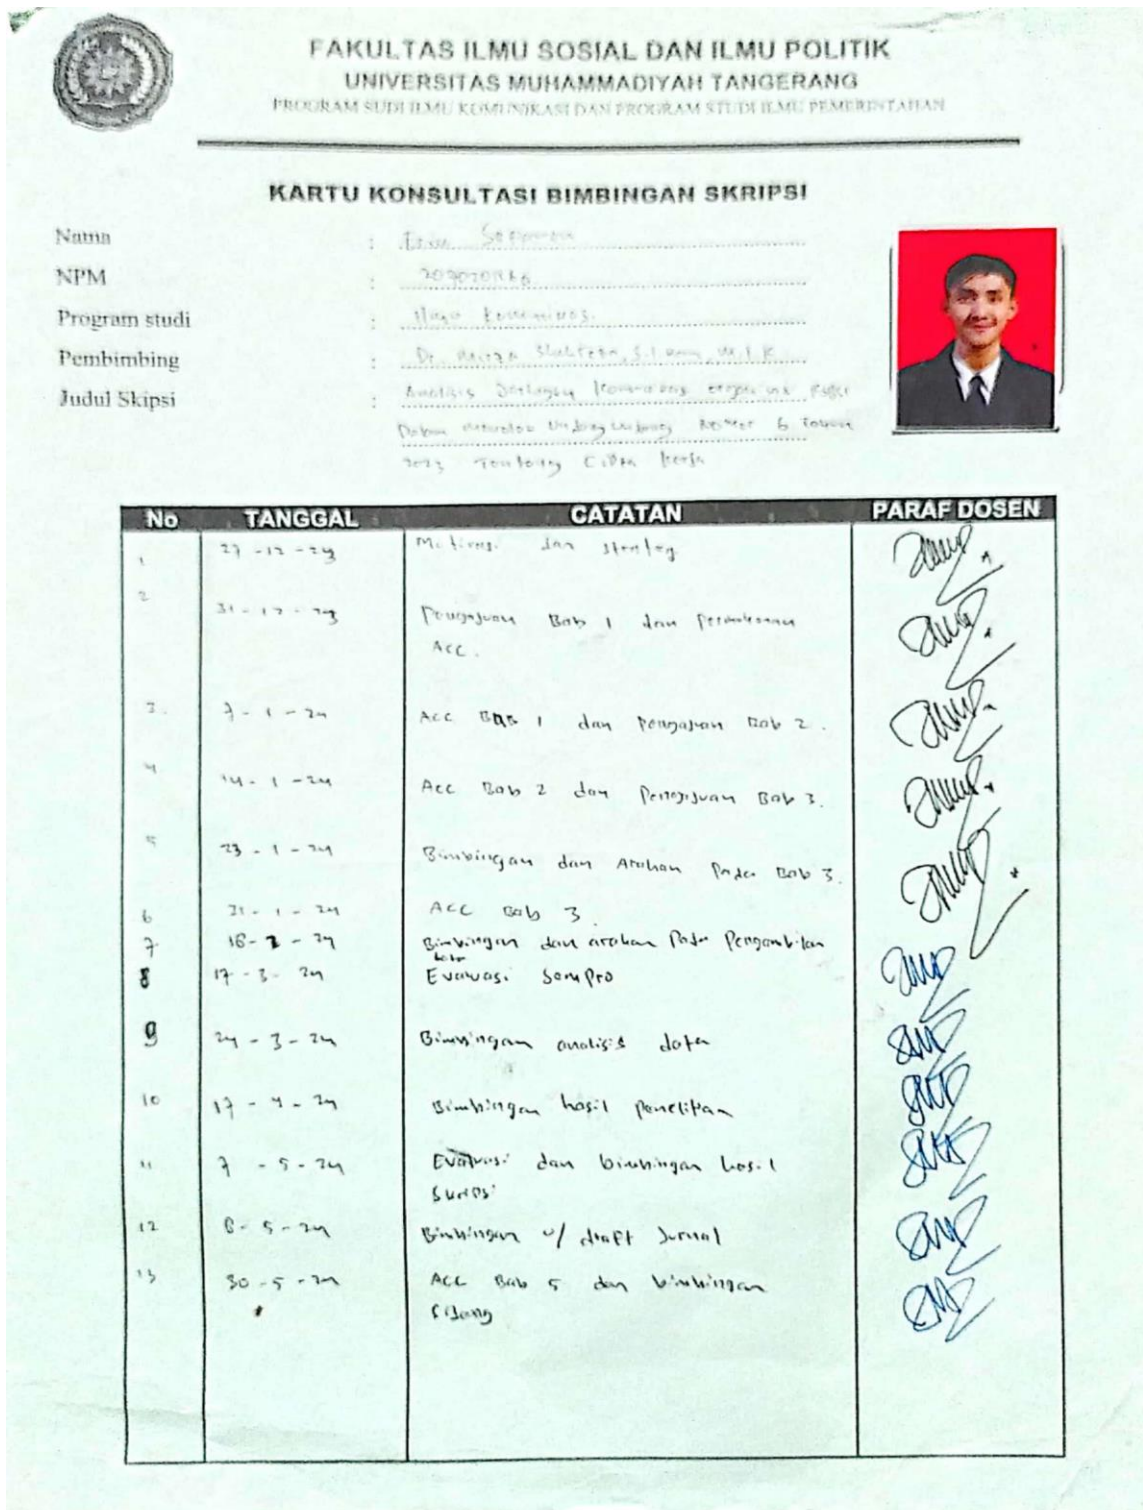 FAKULTAS ILMU SOSIAL DAN ILMU POLITIK
UNIVERSITAS MUHAMMADIYAH TANGERANG
PROGRAM SUDI ILMU KOMUNIKASI DAN PROGRAM STUDI ILMU PEMERINTAHAN
KARTU KONSULTASI BIMBINGAN SKRIPSI
Nama :
NPM :
Program studi : Ilmu
Pembimbing : Dr. M.I.K
Judul Skipsi : Analisis
Nomor 6 Tahun
2023 Tentang Cipta Kerja
No TANGGAL CATATAN PARAF DOSEN
1 27-12- dan
2 31-12- Pengajuan Bab 1 dan
ACC.
3. 7-1-24 Acc Bab 1 dan Pengajuan Bab 2.
4 14-1-24 Acc Bab 2 dan Pengajuan Bab 3.
5 23-1-24 Bimbingan dan Arahan Pada Bab 3.
6 31-1-24 ACC Bab 3.
7 18-2-24 Bimbingan dan arahan Pada Pengambilan
8 17-3-24 Evaluasi Sempro
9 24-3-24 Bimbingan analisis data
10 17-4-24 Bimbingan hasil Penelitian
11 7-5-24 Evaluasi dan bimbingan hasil
12 8-5-24 Bimbingan u/ draft Jurnal
13 30-5-24 ACC Bab 5 dan bimbingan
Sidang